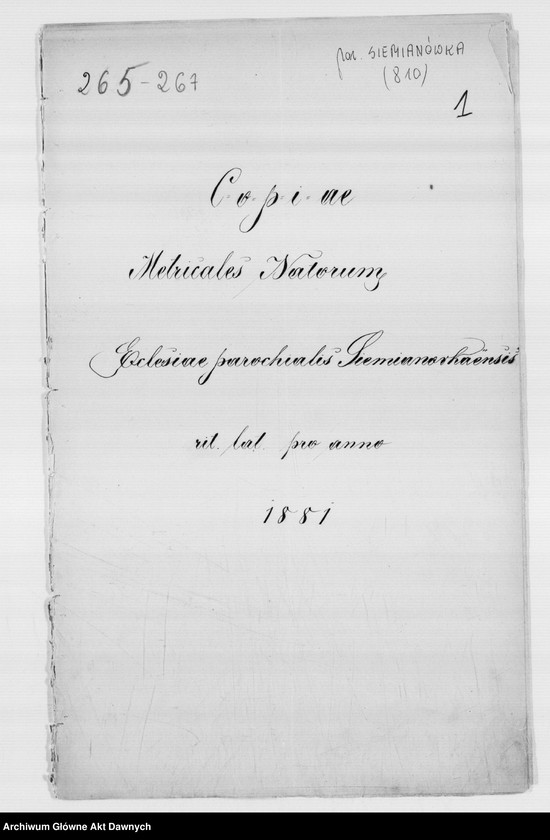 265-267
par. SIEMIANÓWKA
(810)
1
Copiae
Metricales Natorum
Eclesiae parochialis Siemianovkaënsis
rit. lat. pro anno
1881
Archiwum Główne Akt Dawnych